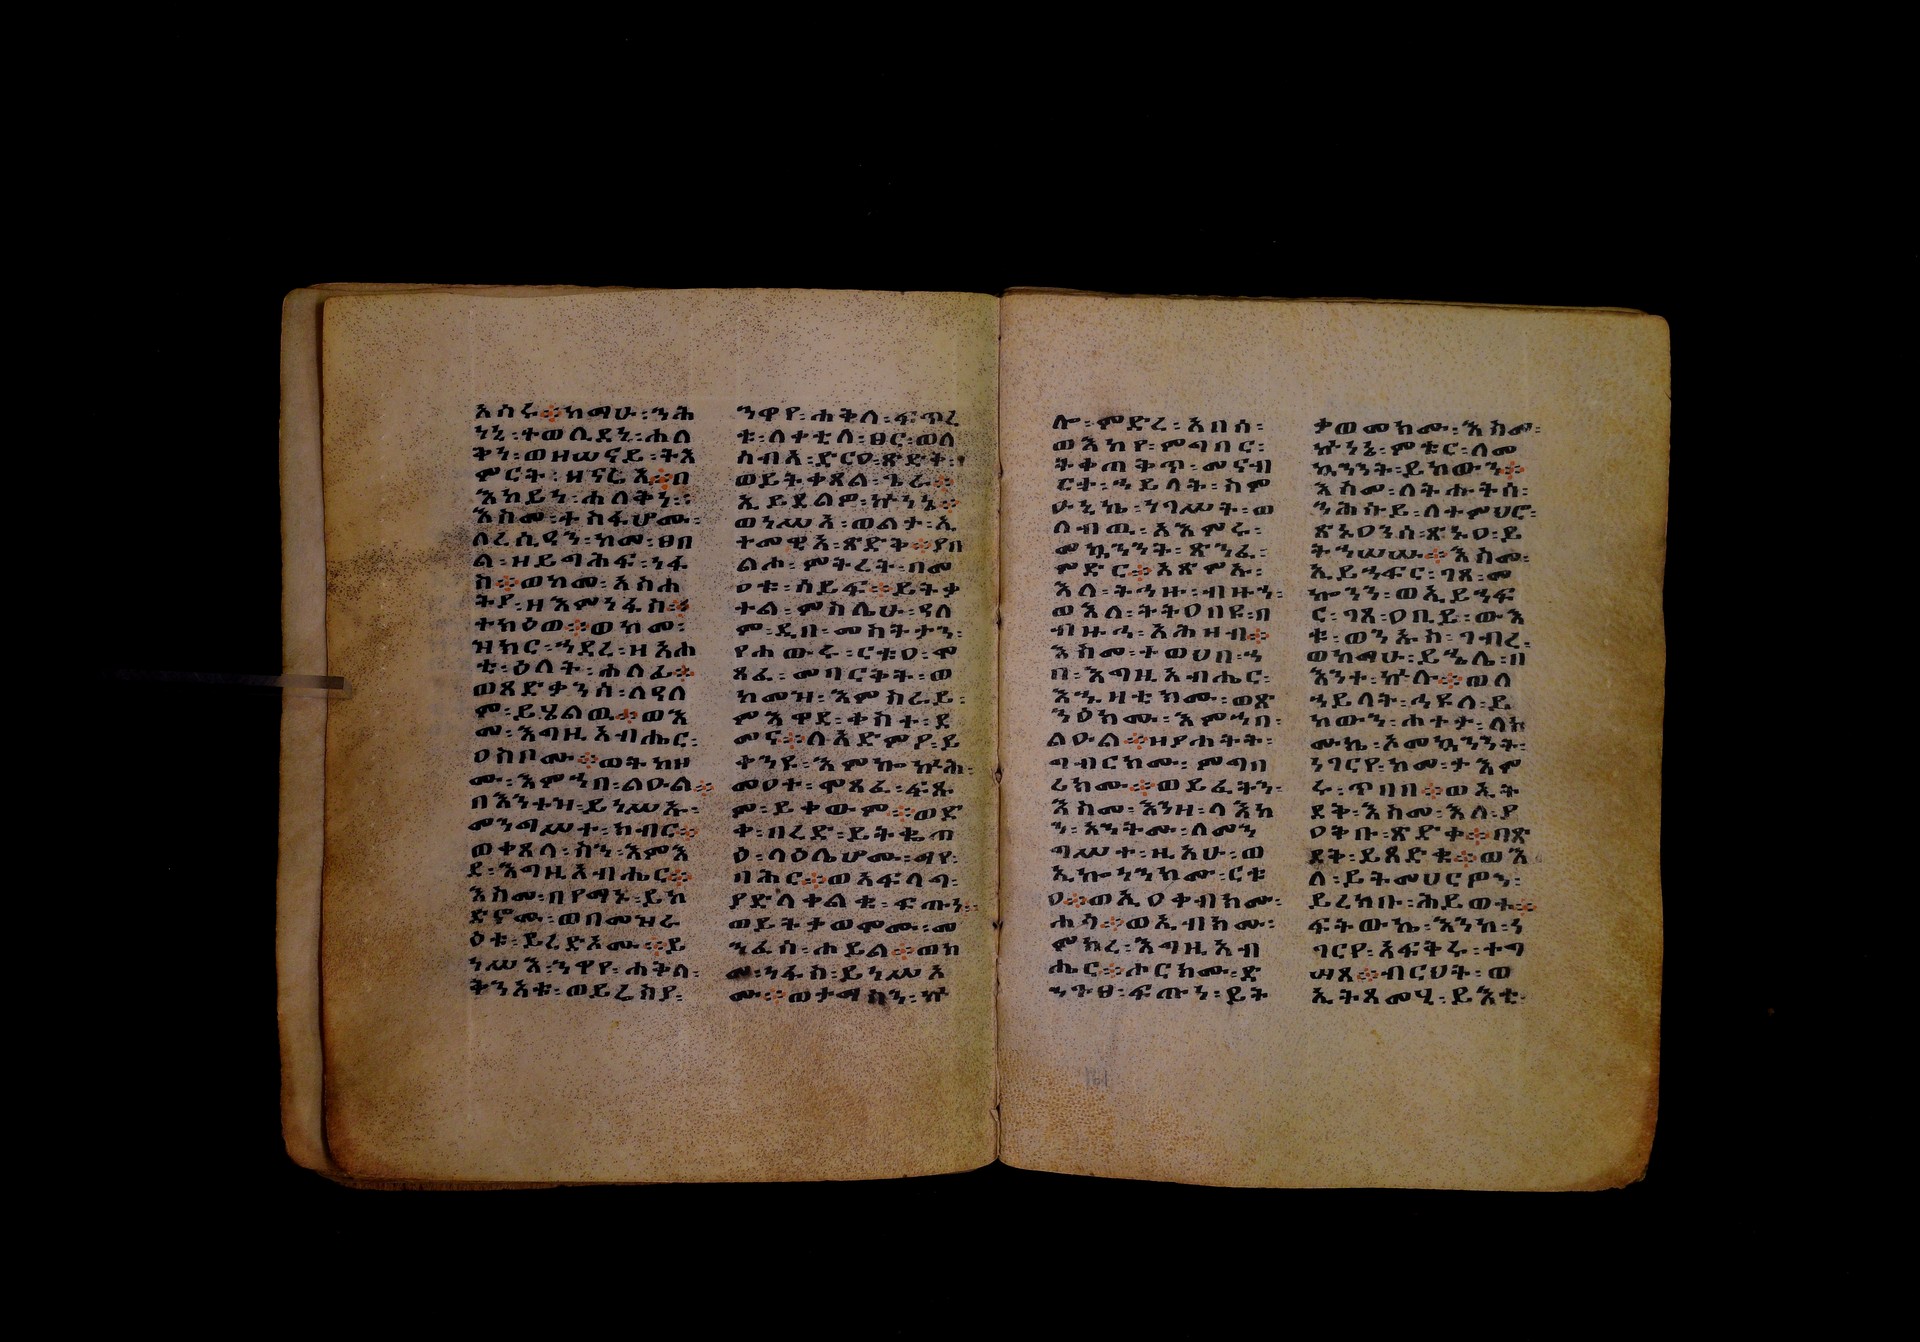 አሰሩ ። ከማሁ ፡ ንሕ
ነኒ ፡ ተወሊደነ ፡ ሐለ
ቅነ ፡ ወዘሠናይ ፡ ትእ
ምርት ፡ ዘናርኢ ። በ
እከይነ ፡ ሐለቅነ ።
እስመ ፡ ተስፋሆሙ ፡
ለረሲዓን ፡ ከመ ፡ ፀበ
ል ፡ ዘይግሕፍ ፡ ነፋ
ስ ። ወከመ ፡ አስሐ
ትያ ፡ ዘእምነፋስ ።
ተክዕወ ። ወከመ ፡
ዝክር ፡ ኀደረ ፡ ዘአሐ
ቲ ፡ ዕለት ፡ ሐለፈ ።
ወጻድቃንሰ ፡ ለዓለ
ም ፡ ይሄልዉ ። ወእ
ሙ ፡ እግዚአብሔር ፡
ዐስቦሙ ። ወትክዞ
ሙ ፡ እምኀበ ፡ ልዑል ።
በእንተዝ ፡ ይነሥኡ ፡
መንግሥተ ፡ ክብር ።
ወቀጸላ ፡ ስን ፡ እምእ
ደ ፡ እግዚአብሔር ።
እስመ ፡ በየማኑ ፡ ይከ
ድኖሙ ፡ ወበመዝራ
ዕቱ ፡ ይረድኦሙ ። ይ
ነሥእ ፡ ንዋየ ፡ ሐቅለ ፡
ቅንአቱ ፡ ወይሬስያ ፡
ንዋየ ፡ ሐቅለ ፡ ፍጥረ
ቱ ፡ ለተቲለ ፡ ፀር ፡ ወለ
ስብአ ፡ ድርዐ ፡ ጽድቅ ፡
ወይትቀጸል ፡ ጌራ ።
ኢይደልዎ ፡ ኵነኔ ።
ወነሥአ ፡ ወልታ ፡ ኢ
ተመዊእ ፡ ጽድቅ ። ያበ
ልሕ ፡ ምትረት ፡ በመ
ዐቱ ፡ ሰይፍ ። ይትቃ
ተል ፡ ምስሌሁ ፡ ዓለ
ም ፡ ዲበ ፡ መስትታን ፡
የሐውሩ ፡ ርቱዐ ፡ ሞ
ጻፈ ፡ መባርቅት ፡ ወ
ከመዝ ፡ እምስራይ ፡
ምእዋደ ፡ ቀስተ ፡ ደ
መና ። ለእድምያ ፡ ይ
ቀንዩ ፡ እምኰኵሕ ፡
መዐተ ፡ ሞጻፈ ፡ ፍጹ
ም ፡ ይቀውም ። ወደ
ቀ ፡ በረድ ፡ ይትቈጣ
ዕ ፡ ላዕሌሆሙ ፡ ማየ ፡
ባሕር ። ወአፍላግ ፡
ያድለቀልቁ ፡ ፍጡነ ።
ወይትቃወሞሙ ፡ መ
ንፈሰ ፡ ሐይል ። ወከ
መ ፡ ነፋስ ፡ ይነሥኦ
ሙ ። ወታማስን ፡ ኵ
ሎ ፡ ምድረ ፡ አበሳ ፡
ወእከየ ፡ ምግባር ፡
ትቀጠቅጥ ፡ መናብ
ርተ ፡ ኀይላት ፡ ስም
ዑኒኬ ፡ ነገሥት ፡ ወ
ለብዉ ፡ አእምሩ ፡
መኳንንት ፡ ጽንፈ ፡
ምድር ። አጽምኡ ፡
እለ ፡ ትኄዙ ፡ ብዙኅ ፡
ወእለ ፡ ትትዐበዩ ፡ በ
ብዙኃ ፡ አሕዛብ ።
እስመ ፡ ተወህበ ፡ ኀ
በ ፡ እግዚአብሔር ፡
እኂዞቲክሙ ፡ ወጽ
ንዕክሙ ፡ እምኀበ ፡
ልዑል ። ዘያሐትት ፡
ግብርክሙ ፡ ምግባ
ሪክሙ ። ወይፈትን ፡
እስመ ፡ እንዘ ፡ ላእካ
ን ፡ አንትሙ ፡ ለመን
ግሥተ ፡ ዚአሁ ፡ ወ
ኢኰነንክሙ ፡ ርቱ
ዐ ። ወኢዐቀብክሙ ፡
ሐገ ። ወኢብክሙ ፡
ምክረ ፡ እግዚአብ
ሔር ። ሖርክሙ ፡ ድ
ንጉፀ ፡ ፍጡነ ፡ ይት
ቃወመክሙ ፡ እስመ ፡
ኵነኔ ፡ ምቱር ፡ ለመ
ኳንንት ፡ ይከውን ።
እስመ ፡ ለትሑትሰ ፡
ንሕሱይ ፡ ለተምህሮ ፡
ጽኑዐንሰ ፡ ጽኑዐ ፡ ይ
ትኀሠሡ ። እስመ ፡
ኢይኀፍር ፡ ገጸ ፡ መ
ኰንን ፡ ወኢይኀፍ
ር ፡ ገጸ ፡ ዐቢይ ፡ ውእ
ቱ ፡ ወንኡስ ፡ ገብረ ፡
ወከማሁ ፡ ይኄሊ ፡ በ
እንተ ፡ ኵሉ ። ወለ
ኀይላት ፡ ኀያል ፡ ይ
ከውን ፡ ሐተታ ፡ ለክ
ሙኬ ፡ ኦመኳንንት ፡
ነገርየ ፡ ከመ ፡ ታእም
ሩ ፡ ጥበበ ። ወኢት
ደቅ ፡ እስመ ፡ እለ ፡ ያ
ዐቅቡ ፡ ጽድቀ ። በጽ
ድቅ ፡ ይጸድቁ ። ወእ
ለ ፡ ይትመሀርዎን ፡
ይረክቡ ፡ ሕይወተ ።
ፍትውኬ ፡ እንከ ፡ ነ
ገርየ ፡ አፍቅሩ ፡ ተግ
ሣጸ ። ብርህት ፡ ወ
ኢትጸመሂ ፡ ይእቲ ፡